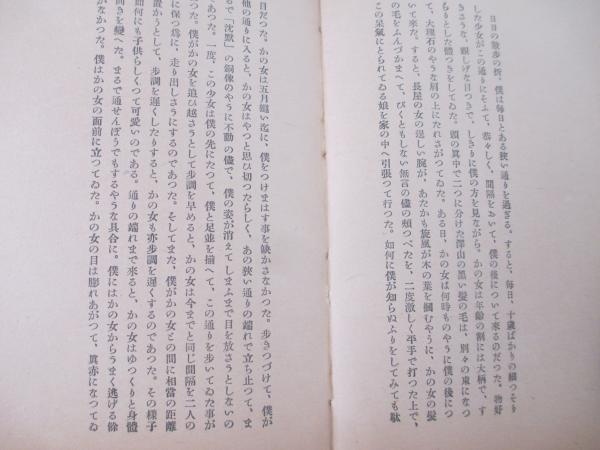 日日の散歩の折、僕は毎日とある狹い通りを過ぎる。すると、毎日、十歳ばかりの細つそり
した少女がこの通りにそふて、恭々しく、間隔をおいて、僕の後について來るのだつた。物好
きさうな、親しげな目つきで、しきりに僕の方を見ながら。かの女は年齢の割には大柄で、す
らりとした體つきをしてゐた。頭の眞中で二つに分けた澤山の黒い髮の毛は、別々の束になつ
て、大理石のやうな肩の上にたれさがつてゐた。ある日、かの女は何時ものやうに僕の後につ
いて來た。すると、長屋の女の逞しい腕が、あたかも旋風が木の葉を掴むやうに、かの女の髮
の毛をふんづかまへて、びくともしない無言の儘の頰つぺたを、二度激しく平手で打つた上で、
この呆氣にとられてゐる娘を家の中へ引張つて行つた。如何に僕が知らぬふりをしてみても駄
目だつた。かの女は五月蠅い迄に、僕をつけまはす事を缺かさなかつた。歩きつづけて、僕が
他の通りに入ると、かの女はやつと思ひ切つたらしく、あの狹い通りの端れで立ち止つて、ま
るで「沈默」の銅像のやうに不動の儘で、僕の姿が消えてしまふまで目を放さうとしないの
であつた。一度、この少女は僕の先にたつて、僕と足並を揃へて、この通りを歩いてゐた事が
あつた。僕がかの女を追ひ越さうとして歩調を早めると、かの女は今までと同じ間隔を二人の
間に保つ爲に、走り出しさうにするのであつた。そしてまた、僕がかの女との間に相當の距離
を置かうとして、歩調を遲くしたりすると、かの女も亦歩調を遲くするのであつた。その樣子
は如何にも子供らしくつて可愛いのである。通りの端れまで來ると、かの女はゆつくりと身體
の向きを變へた。まるで通せんぼうでもするやうな具合に。僕にはかの女からうまく逃げる餘
裕がなかつた。僕はかの女の面前に立つてゐた。かの女の目は膨れあがつて、眞赤になつてゐ